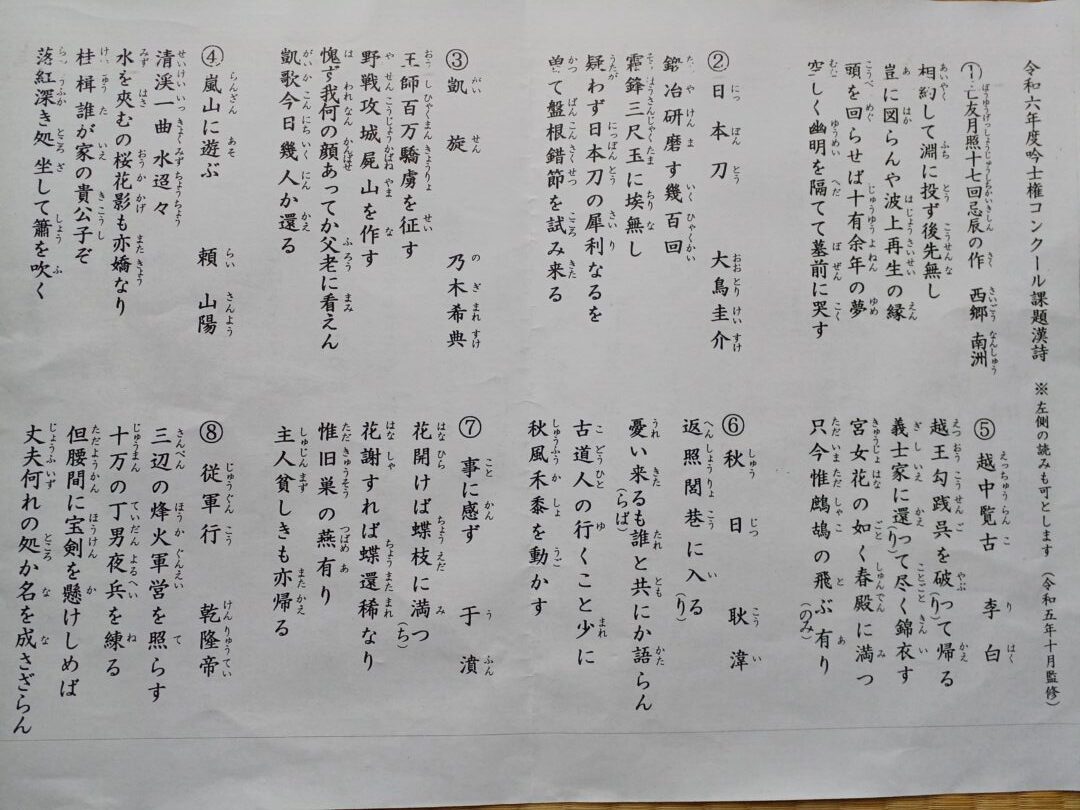 令和六年度吟士権コンクール課題漢詩 ※左側の読みも可とします (令和五年十月監修)
①亡友月照十七回忌辰の作 西郷 南洲
相約して淵に投ず後先無し
豈に図らんや波上再生の縁
頭を回らせば十有余年の夢
空しく幽明を隔てて墓前に哭す
②日本刀 大鳥圭介
鍛冶研磨す幾百回
霜鋒三尺玉に埃無し
疑わず日本刀の犀利なるを
曽て盤根錯節を試み来る
③凱旋 乃木希典
王師百万驕虜を征す
野戦攻城屍山を作す
愧ず我何の顔あってか父老に看えん
凱歌今日幾人か還る
④嵐山に遊ぶ 頼 山陽
清渓一曲 水迢々
水を夾むの桜花影も亦嬌なり
桂楫誰が家の貴公子ぞ
落紅深き処 坐して簫を吹く
⑤越中覧古 李白
越王勾践呉を破って(り)帰る
義士家に還って(り)尽く錦衣す
宮女花の如く春殿に満つ
只今惟鷓鴣の飛ぶ有り(のみ)
⑥秋日 耿湋
返照閭巷に入る(り)
憂い来るも(らば)誰と共にか語らん
古道人の行くこと少に
秋風禾黍を動かす
⑦事に感ず 于濆
花開けば蝶枝に満つ(ち)
花謝すれば蝶還稀なり
惟旧巣の燕有り
主人貧しきも亦帰る
⑧従軍行 乾隆帝
三辺の烽火軍営を照らす
十万の丁男夜兵を練る
但腰間に宝剣を懸けしめば
丈夫何れの処か名を成さざらん